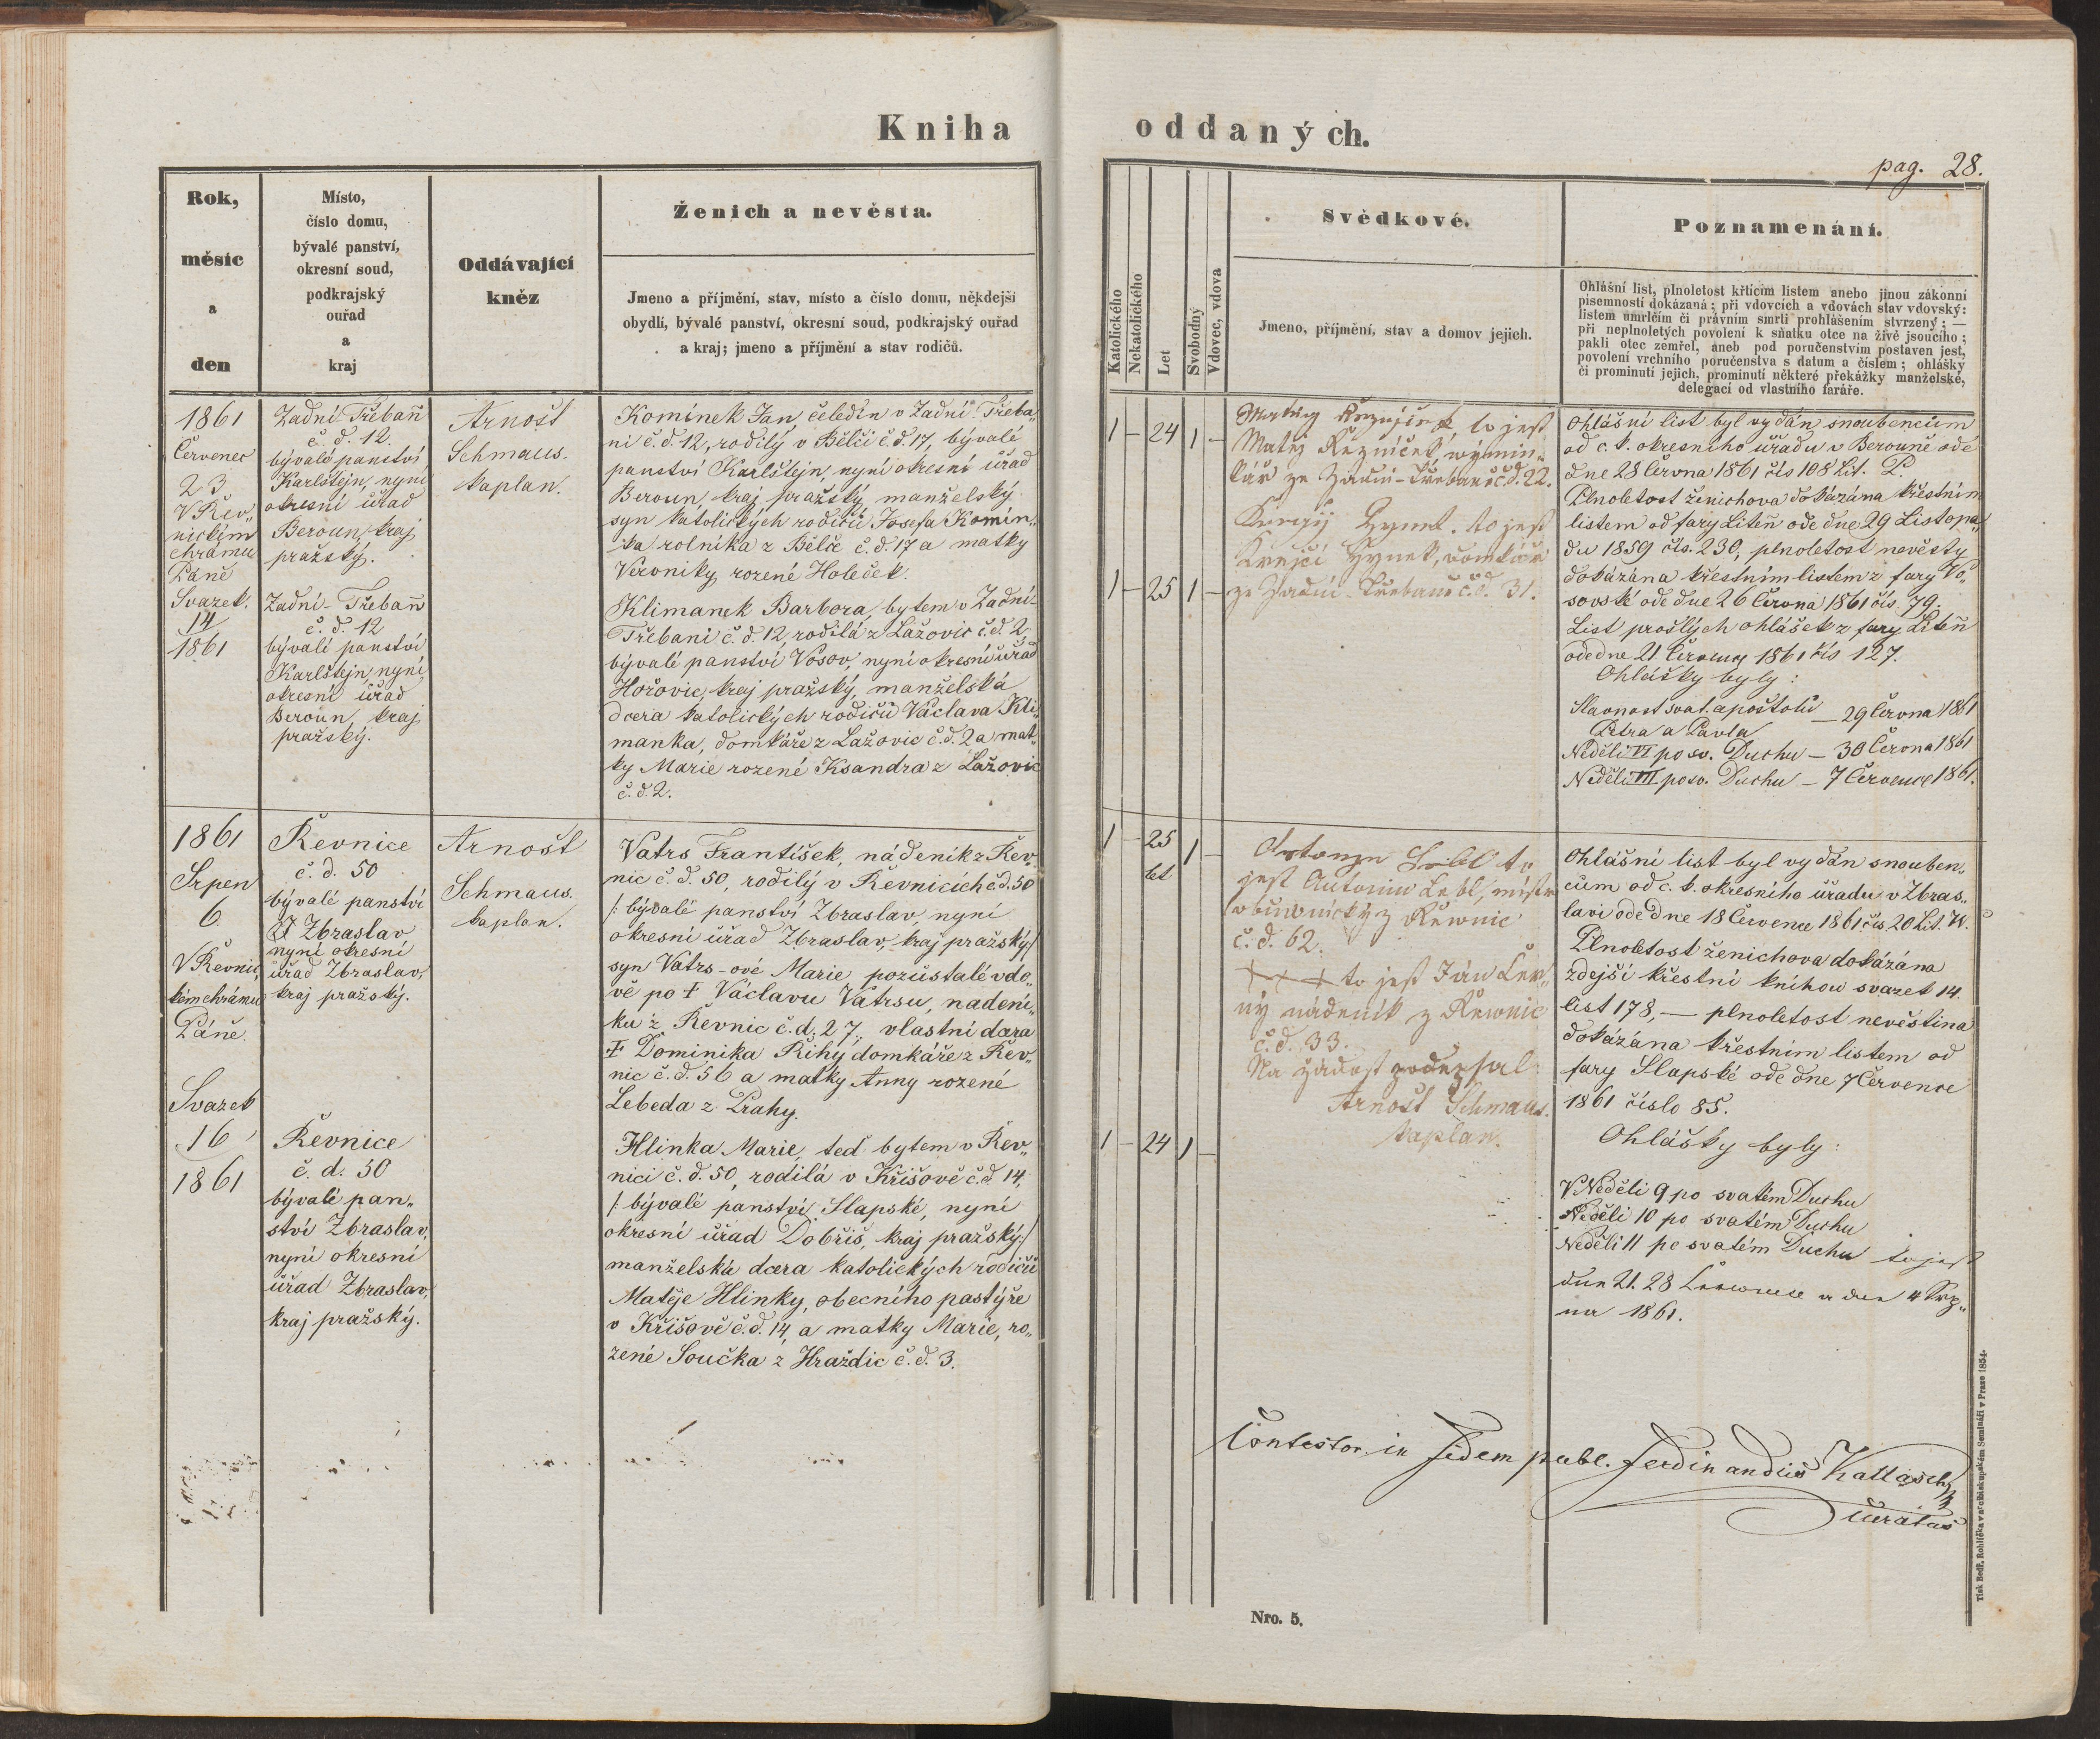 Kniha
Rok,
měsíc
a
den
Místo,
číslo domu,
bývalé panství,
okresní soud,
podkrajský
ouřad
a
kraj
Oddávající
kněz
Ženich a nevěsta.
Jmeno a příjmění, stav, místo a číslo domu, někdejší
obydlí, bývalé panství, okresní soud, podkrajský ouřad
a kraj; jmeno a příjmění a stav rodičů.
1861
Červenec
23
V Řev„
nickém
chrámu
Páně
Svazek.
14
1861
Zadní-Třebaň
č. d. 12.
bývalé panství
Karlštejn, nyní
okresní úřad
Beroun, kraj
pražský.
Zadní-Třebaň
č. d. 12
bývalé panství
Karlštejn, nyní
okresní úřad
Beroun, kraj
pražský.
Arnošt
Schmaus.
kaplan.
Komínek Jan, čeledín v Zadní-Třeba„
ni č. d. 12, rodilý v Bělči č. d. 17, bývalé
panství Karlštejn, nyní okresní úřad
Beroun, kraj pražský, manželský
syn katolických rodičů Josefa Komín„
ka rolníka z Bělče č. d. 17 a matky
Veroniky rozené Holeček.
Klimanek Barbora, bytem v Zadní-
Třebani č. d. 12, rodilá z Lažovic č. d. 2
bývalé panství Vosov, nyní okresní úřad
Hořovic, kraj pražský, manželská
dcera katolických rodičů Václava Kli„
manka, domkáře z Lažovic č. d. 2 a mat„
ky Marie rozené Ksandra z Lažovic
č. d. 2.
1861
Srpen
6.
V Řevnic„
kém chrámu
Páně.
Svazek
16
1861
Řevnice
č. d. 50
bývalé panství
Zbraslav
nyní okresní
úřad Zbraslav,
kraj pražský.
Řevnice
č. d. 50
bývalé pan„
ství Zbraslav,
nyní okresní
úřad Zbraslav,
kraj pražský.
Arnošt
Schmaus.
kaplan.
Vatrs František, nádeník z Řev„
nic č. d. 50, rodilý v Řevnicích č d. 50
/: bývalé panství Zbraslav, nyní
okresní úřad Zbraslav, kraj pražský:/
syn Vatrs-ové Marie pozůstalé vdo„
vě po † Václavu Vatrsu, nádení„
ku z Řevnic č. d. 27., vlastní dcera
† Dominika Řihy domkáře z Řev„
nic č. d. 56 a matky Anny rozené
Lebeda z Prahy.
Hlinka Marie, teď bytem v Řev„
nici č. d. 50, rodilá v Křišově č. d. 14,
/: bývalé panství Slapské, nyní
okresní úřad Dobříš, kraj pražský:/
manželská dcera katolických rodičů
Matěje Hlinky, obecního pastýře
v Křišově č. d. 14, a matky Marie, ro„
zené Součka z Hraždic č. d. 3.
oddaných.
pag. 28.
Katolického
Nekatolického
Let
Svobodný
Vdovec, vdova
Svědkové.
Jmeno, příjmění, stav a domov jejich.
Poznamenání.
Ohlášní list, plnoletost křticím listem anebo jinou zákonní
písemností dokázaná; při vdovcích a vdovách stav vdovský:
listem úmrlčím či právním smrti prohlášením stvrzený; —
při neplnoletých povolení k sňatku otce na živě jsoucího;
pakli otec zemřel, aneb pod poručenstvím postaven jest,
povolení vrchního poručenstva s datum a číslem; ohlášky
či prominutí jejich, prominutí některé překážky manželské,
delegací od vlastního faráře.
1 – 24 1 –
1 – 25 1 –
to jest
Matěj Řezníček, výmin„
kář ze Zadní-Třebaně č. d. 22.
Hynek to jest
Krejčí Hynek, domkář
ze Zadní-Třebaně č. d. 31.
Ohlášní list byl vydán snoubencům
od c. k. okresního úřadu v Berouně ode
dne 28 Června 1861 čís 108 Lit. P.
Plnoletost ženichova dokázána křestním
listem od fary Liteň ode dne 29 Listopa„
du 1859 čís. 230, plnoletost nevěsty
dokázána křestním listem z fary Vo„
sovské ode dne 26 Června 1861 čís. 79.
List prošlých ohlášek z fary Liteň
ode dne 21 Července 1861 čís 127.
Ohlášky byly:
Slavnost svat. apoštolů — 29 Června 1861
Petra a Pavla
Neděli VI po sv. Duchu — 30 Června 1861
Neděli VII po sv. Duchu — 7 Července 1861.
1 – 25 1 –
let
1 – 24 1 –
Lebl to
jest Antonín Lebl, mistr
z Řewnic
č. d. 62.
+ + + to jest Ján Čer„
ný nádeník z Řewnic
č. d. 33.
Na žádost podepsal
Arnošt Schmaus.
kaplan.
Ohlášní list byl vydán snouben„
cům od c. k. okresního úřadu v Zbras„
lavi ode dne 18 Července 1861 čís 20 Lit. W.
Plnoletost ženichova dokázána
zdejší křestní knihou svazek 14.
list 178, — plnoletost nevěstina
dokázána křestním listem od
fary Slapské ode dne 7 Července
1861 číslo 85.
Ohlášky byly:
V Neděli 9 po svatém Duchu
Neděli 10 po svatém Duchu
Neděli 11 po svatém Duchu to jest
dne 21. 28 Července a den 4 Srp„
na 1861.
Contestor in fidem publ. Ferdinandus Kallasch
Curatus
Nro. 5.
Tisk Bedř. Rohlíčka v arcibiskupském Semináři v Praze 1854.